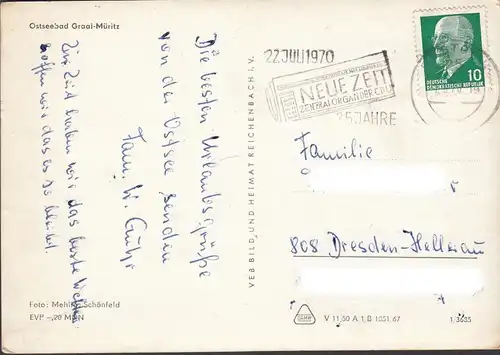 Ostseebad Graal-Müritz
Die besten Urlaubsgrüße
von der Ostsee senden
Fam. W. Guhr
Zur Zeit haben wir das beste Wetter
hoffen wir das es so bleibt.
Foto: Schönfeld
EVP -,20 MDN
VEB BILD UND HEIMAT REICHENBACH I. V.
22 JULI 1970
NEUE ZEIT
ZENTRALORGAN DER CDU
25 JAHRE
DEUTSCHE
DEMOKRATISCHE REPUBLIK
10
Familie
808 Dresden-Hellerau
V 11 50 A 1 B 1051 67
1/3635